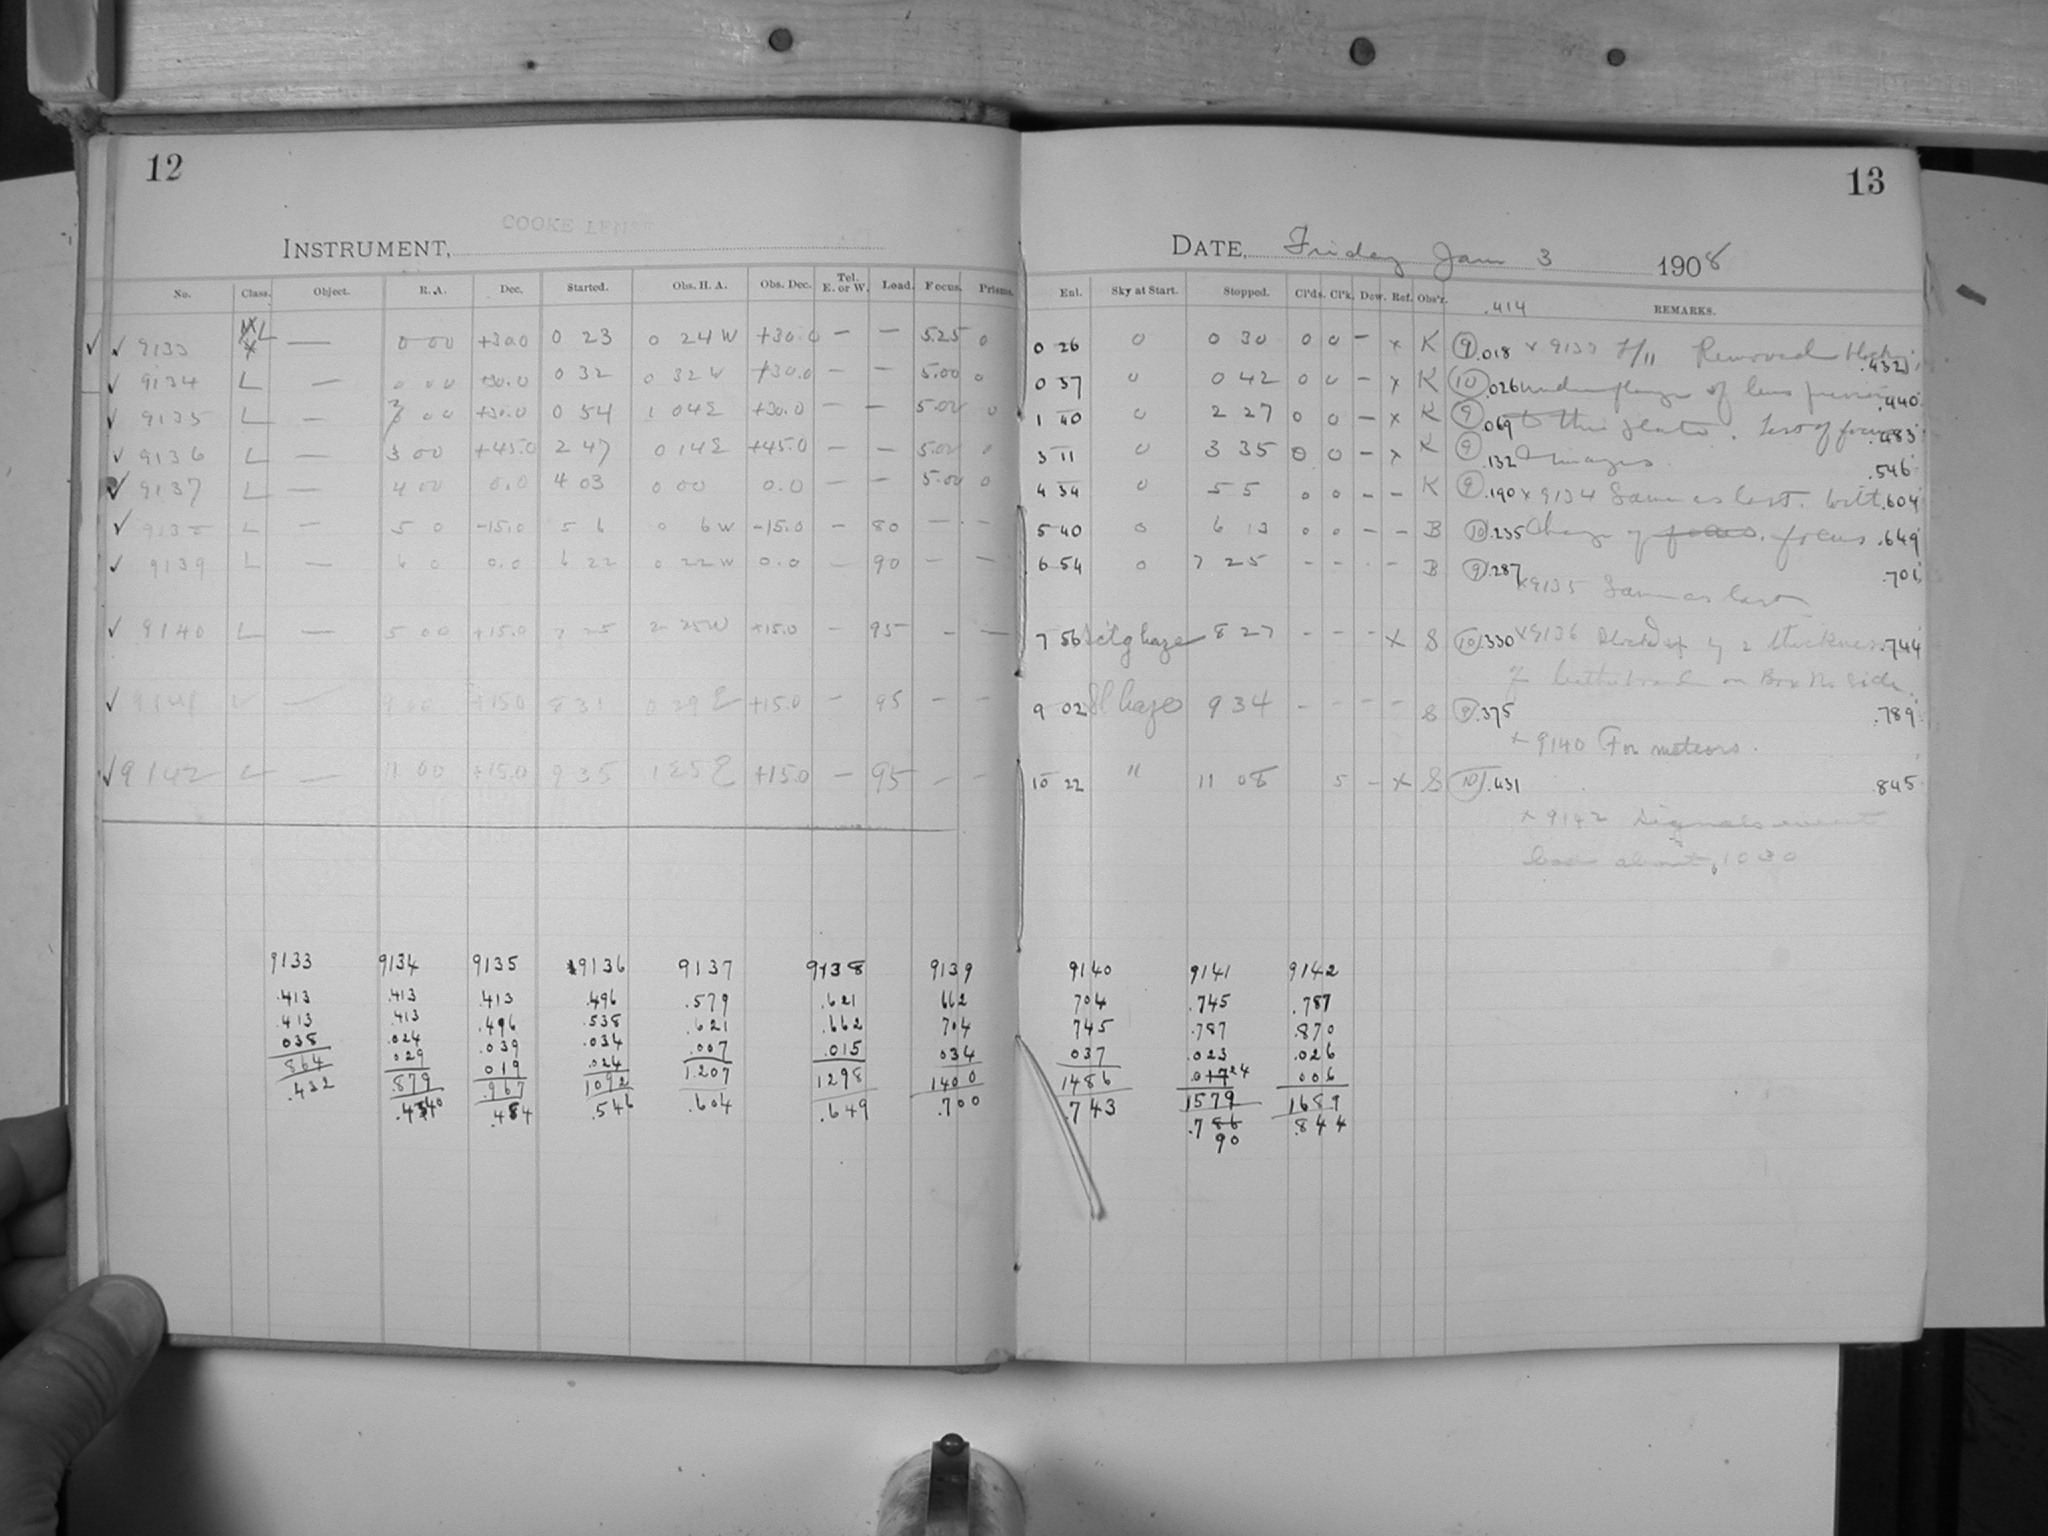 12
COOKE LENS
INSTRUMENT,
No. Class. Object. R.A. Dec. Started. Obs. H. A. Obs. Dec. Tel. E. or W. Load. Focus. Prisms.
✓ ✓ 9133 L — 0 00 +30.0 0 23 0 24 W +30.0 — — 5.25 0
✓ 9134 L — 0 00 +30.0 0 32 0 32 W +30.0 — — 5.00 0
✓ 9135 L — 00 +30.0 0 54 1 04 E +30.0 — — 5.00 0
✓ 9136 L — 3 00 +45.0 2 47 0 14 E +45.0 — — 5.00
✓ 9137 L — 4 00 0.0 4 03 0 00 0.0 — — 5.00 0
✓ 9138 L — 5 0 -15.0 5 6 0 6 W -15.0 — 80 — —
✓ 9139 L — 6 0 0.0 6 22 0 22 W 0.0 — 90 — —
✓ 9140 L — 5 00 +15.0 7 25 2 25 W +15.0 — 95 — —
✓ 9141 L — 9 00 +15.0 8 31 0 29 E +15.0 — 95 — —
✓ 9142 L — 11 00 +15.0 9 35 1 25 E +15.0 — 95 — —
9133 9134 9135 9136 9137 9138 9139
.413 .413 .413 .496 .579 .621 662
.413 .413 .496 .538 .621 .662 704
038 .024 .039 .034 .007 .015 034
864 029 019 024 1.207 1298 1400
.432 .879 .967 1092 .604 .649 .700
.440 .484 .546
13
DATE, Friday Jan 3 1908
Enl. Sky at Start. Stopped. Cl'ds. Cl'k. Dew. Ref. Obs'r. .414 REMARKS.
0 26 0 0 30 0 0 — x K 9 .018 x 9133 F/11 Removed .432
0 37 0 0 42 0 0 — x K 10 .026 under flange of lens previous .440
1 40 0 2 27 0 0 — x K 9 .069 to this plate. Test of focus .483
3 11 0 3 35 0 0 — x K 9 .132 images. .546
4 34 0 5 5 0 0 — — K 9 .190 x 9134 Same as last. With .604
5 40 0 6 13 0 0 — — B 10 .235 change of focus .649
6 54 0 7 25 — — — B 9 .287 .701
x 9135 Same as last
7 56 haze 8 27 — — — x S 10 .330 x 9136 by 2 thickness .744
of on Box No side.
9 02 Sl haze 9 34 — — — — S 9 .375 .789
x 9140 For meteors.
10 22 " 11 08 5 — x S 10 .431 .845
x 9142 Signals went
bad about 10 30
9140 9141 9142
704 .745 .787
745 .787 .870
037 .023 .026
1486 .017 24 006
.743 1579 1689
.786 .844
90